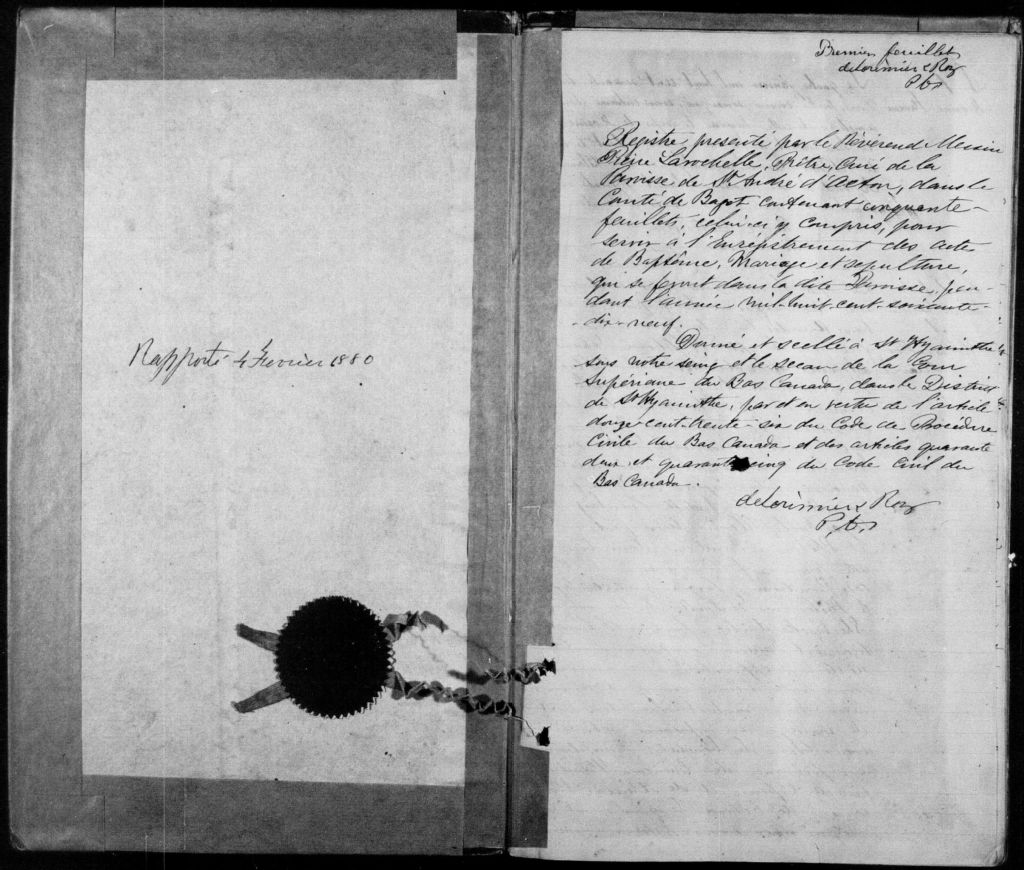 Rapporté 4 Fevrier 1880
Premier feuillet
deLorimier & Roy
P.b.s
Registre présenté par le Révérend Messire
Pierre Larochelle, Prêtre, Curé de la
Paroisse de St André d'Acton, dans le
Comté de Bagot contenant cinquante-
feuillets, celui-ci y compris, pour
servir à l'Enrégistrement des acte
de Baptême, Mariage et sepulture,
qui se feront dans la dite Paroisse, pen-
dant l'année mil-huit-cent-soixante-
-dix-neuf.
Donné et scellé à St Hyacinthe
sous notre seing et le sceau de la Cour
Supérieure du Bas Canada, dans le District
de St Hyacinthe, par et en vertu de l'article
douze-cent-trente-six du Code de Procédure
Civile du Bas Canada et des articles quarante
deux et quarante cinq du Code Civil du
Bas Canada.
deLorimier & Roy